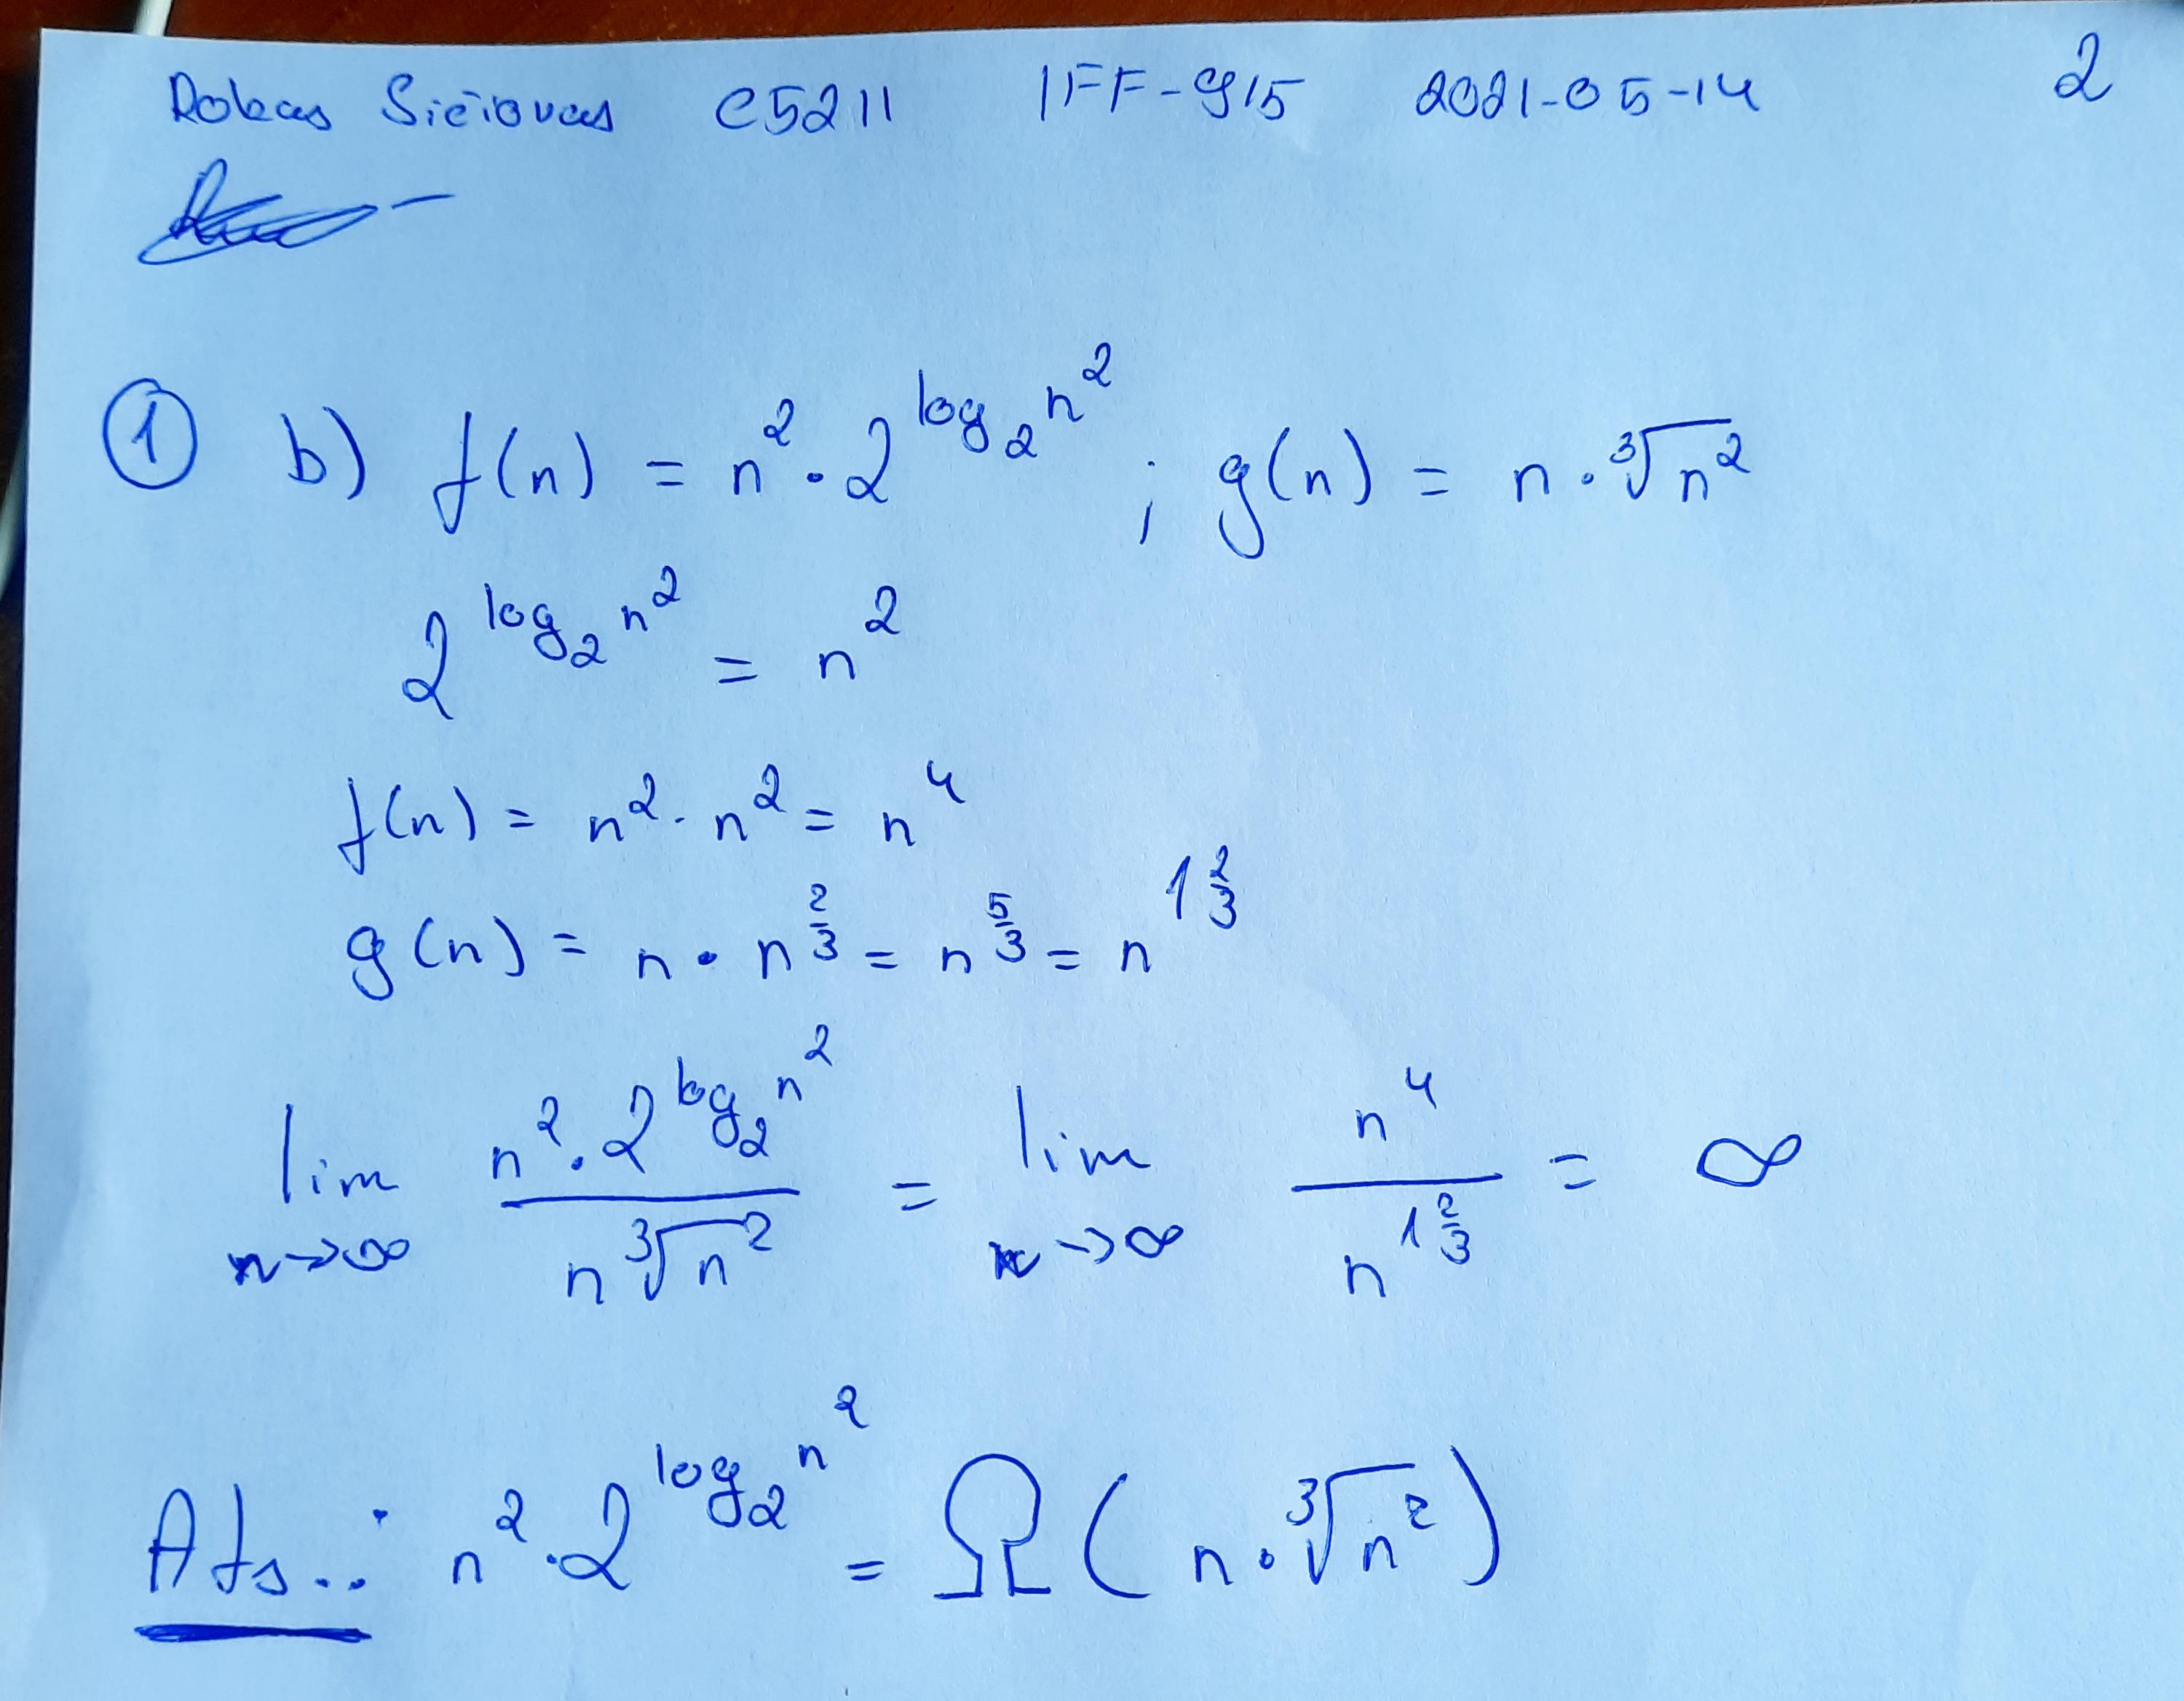 Rokas Sičiovas C5211 IFF-9/5 2021-05-14 2
① b) f(n) = n² · 2^(log₂ n²) ; g(n) = n · ∛n²
2^(log₂ n²) = n²
f(n) = n² · n² = n⁴
g(n) = n · n^(2/3) = n^(5/3) = n^(1 2/3)
lim n→∞ (n² · 2^(log₂ n²)) / (n ∛n²) = lim n→∞ n⁴ / n^(1 2/3) = ∞
Ats.: n² · 2^(log₂ n²) = Ω(n · ∛n²)